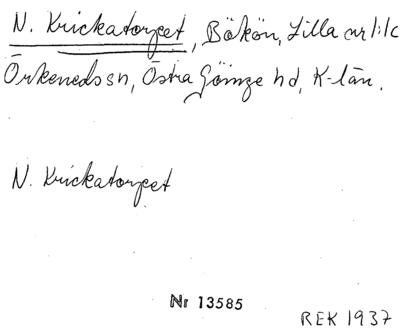 N. Krickatorpet, Bökön, Lilla nr 1:1c
Örkeneds sn, Östra Göinge hd, K-län.
N. Krickatorpet
Nr 13585
REK 1937